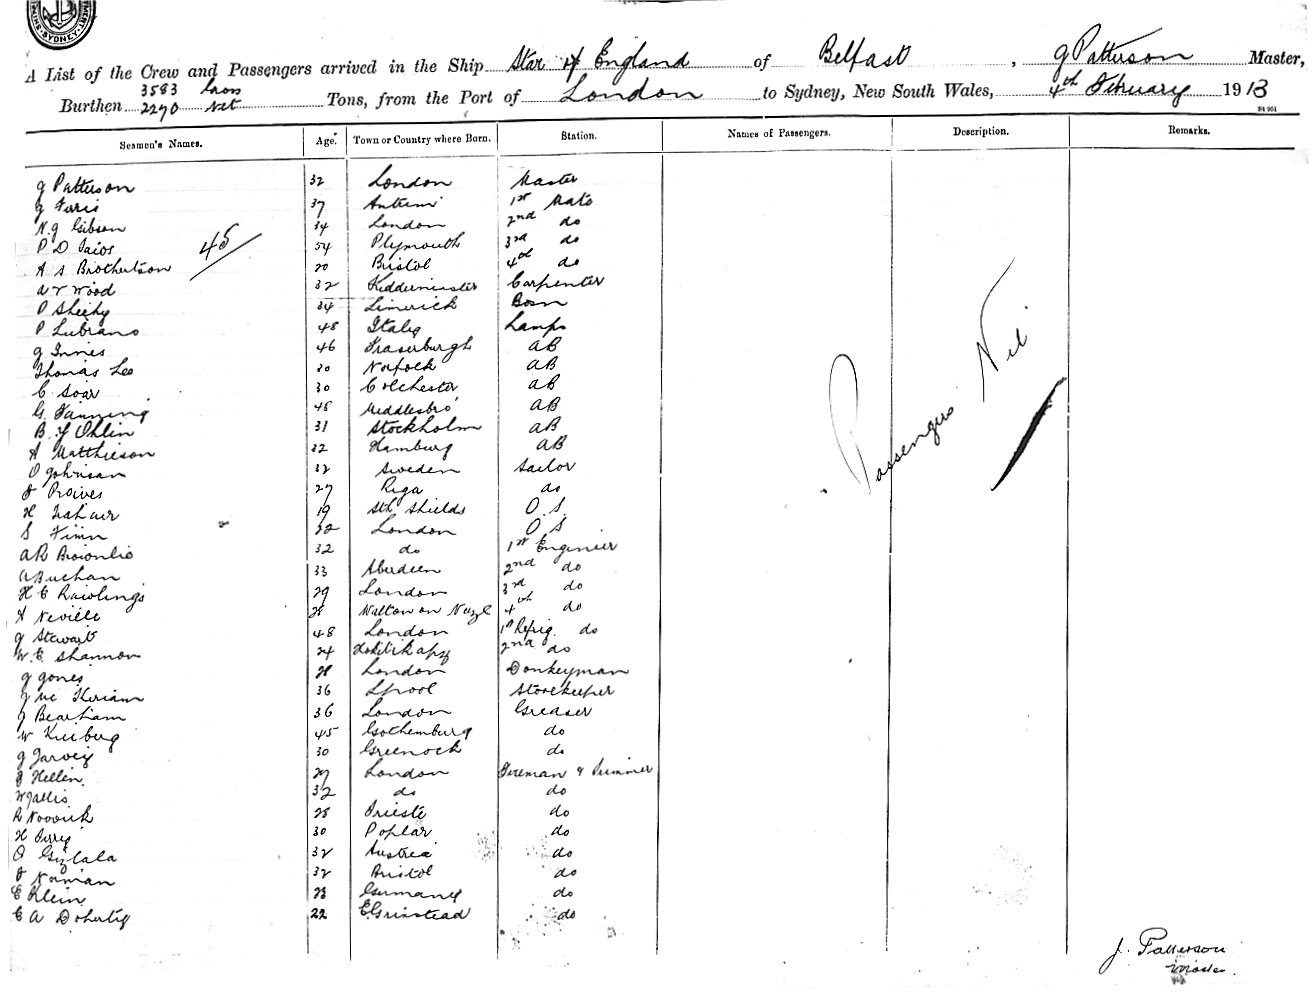 SYDNEY
A List of the Crew and Passengers arrived in the Ship Star of England of Belfast, J Patterson Master,
Burthen 3583 Gross 2270 Net Tons, from the Port of London to Sydney, New South Wales, 4th February 1913
Seamen's Names. Age. Town or Country where Born. Station. Names of Passengers. Description. Remarks.
J Patterson 32 London Master
J Faris 37 Antrim 1st Mate
N.J Gibson 34 London 2nd do
P D 54 Plymouth 3rd do
45
A S Brotherton 20 Bristol 4th do
Wood 32 Kidderminster Carpenter
P Sheehy 34 Limerick Bosn
P Lubrano 48 Italy Lamps
J Innes 46 Fraserburgh AB
Thomas Leo 30 Norfolk AB
C Soar 30 Colchester AB
G Fanning 48 Middlesbro' AB
B. Y Ohlin 31 Stockholm AB
A Matthieson 32 Hamburg AB
O Johnson 32 Sweden Sailor
27 Riga do
H 19 Sth Shields O.S.
S 32 London O S
A R Brownlie 32 do 1st Engineer
A Buchan 33 Aberdeen 2nd do
H C Rawlings 29 London 3rd do
A Neville 28 Walton on Naze 4th do
J Stewart 48 London 1st Refrig. do
W. E. Shannon 24 2nd do
J Jones 28 London Donkeyman
J Mc 36 Lpool Storekeeper
J Bearham 36 London Greaser
W 45 Gothemburg do
J Jarvey 30 Greenock do
J Hellin 27 London Fireman & Trimmer
W Jallis 32 do do
R Novvick 28 Trieste do
H Perry 30 Poplar do
32 Austria do
J Norman 32 Bristol do
E Klein 23 Germany do
C A Doherty 22 E Grinstead do
Passengers Nil
J. Patterson
Master.